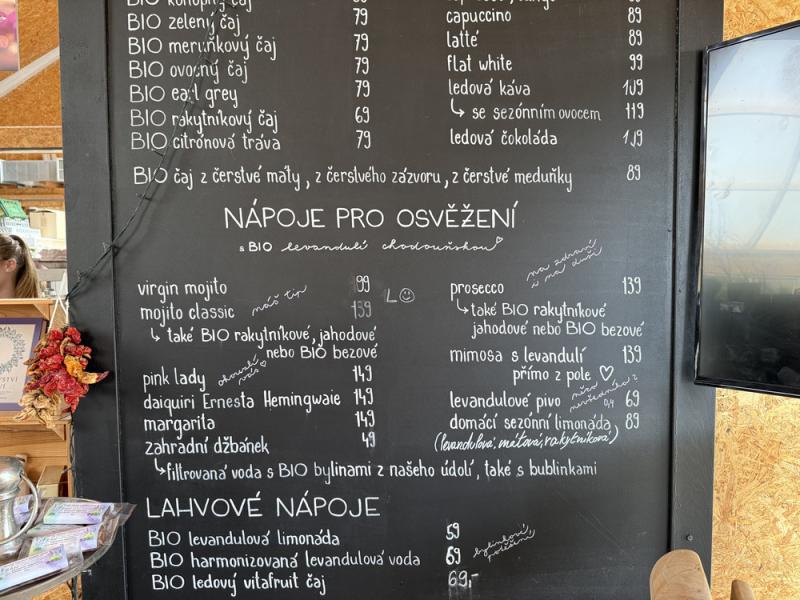 BIO konopný čaj
BIO zelený čaj 79
BIO meruňkový čaj 79
BIO ovocný čaj 79
BIO earl grey 79
BIO rakytníkový čaj 69
BIO citrónová tráva 79
capuccino 89
latté 89
flat white 99
ledová káva 109
↳ se sezónním ovocem 119
ledová čokoláda
BIO čaj z čerstvé máty, z čerstvého zázvoru, z čerstvé meduňky 89
NÁPOJE PRO OSVĚŽENÍ
s BIO levandulí chodouňskou
virgin mojito 99
mojito classic náš tip 159
↳ také BIO rakytníkové, jahodové
nebo BIO bezové
pink lady 149
daiquiri Ernesta Hemingwaie 149
margarita 149
zahradní džbánek 49
↳ filtrovaná voda s BIO bylinami z našeho údolí, také s bublinkami
na zdraví
i na duši
prosecco 139
↳ také BIO rakytníkové
jahodové nebo BIO bezové
mimosa s levandulí 139
přímo z pole ♡
levandulové pivo 0,4 69
domácí sezónní limonáda 89
(levandulová, mátová, rakytníková)
LAHVOVÉ NÁPOJE
BIO levandulová limonáda 59
BIO harmonizovaná levandulová voda 69
bylinkové
potěšení
BIO ledový vitafruit čaj 69,-